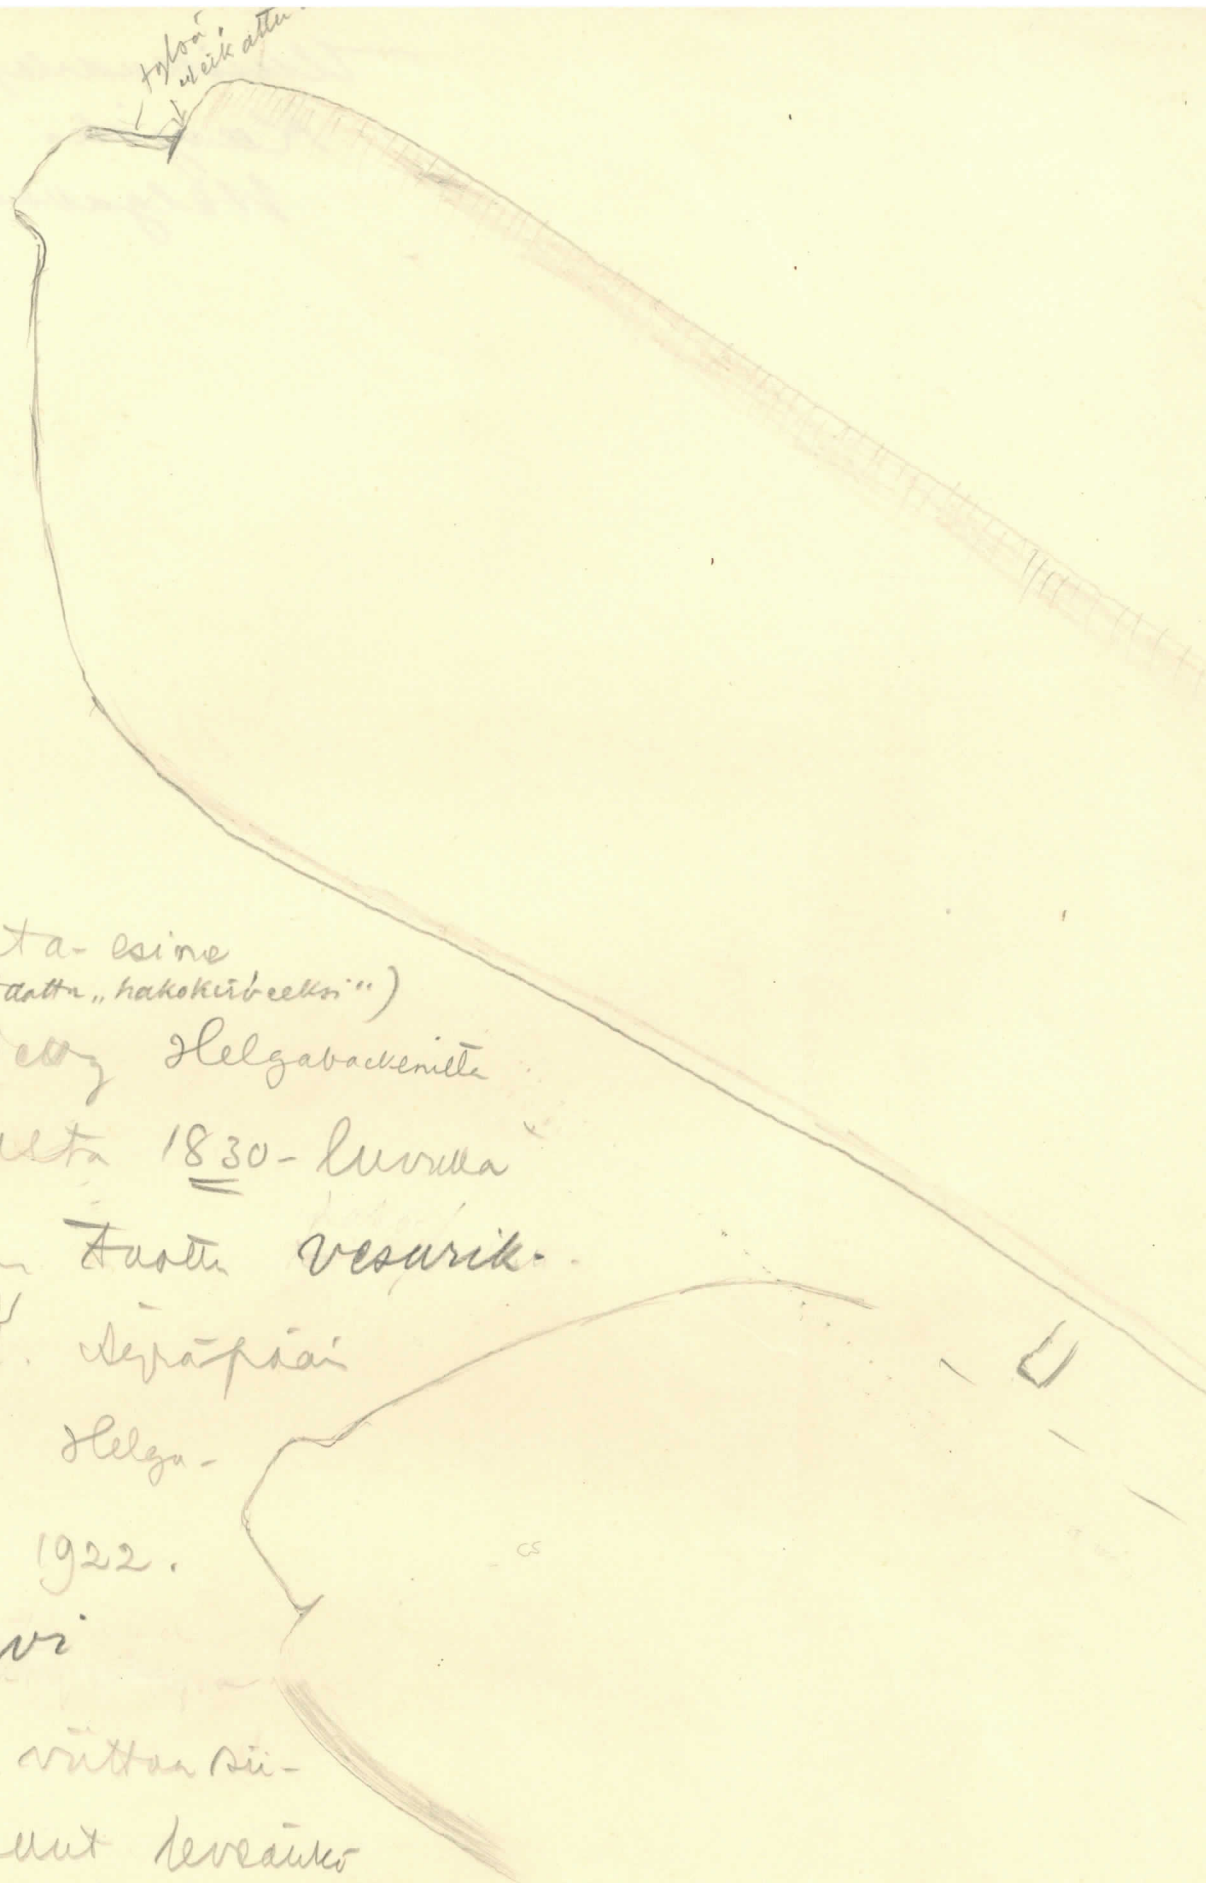 tylsä,
leikattu.
ta-esine
dottu „hakokirveeksi")
Helgabackenilta
sta 1830-luvulla
vesurik-
Äyräpään
Helga-
1922.
vi
viittaa sii-
nut leveäukö